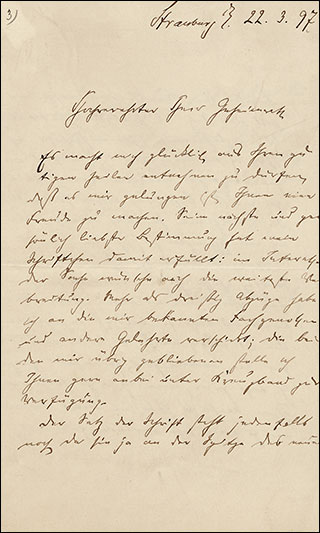 3)
Strassburg i/E. 22. 3. 97
Hochverehrter Herr Geheimrath
Es macht mich glücklich aus Ihren gü-
tigen Zeilen entnehmen zu dürfen,
daß es mir gelungen ist Ihnen eine
Freude zu machen. Seine nächste und per-
sönlich liebste Bestimmung hat mein
Schriftchen damit erfüllt: im Interesse
der Sache wünsche ich die weiteste Ver-
breitung. Mehr als dreißig Abzüge habe
ich an die mir bekannten Fachgenossen
und andere Gelehrte verschickt, die bei-
den mir übrig gebliebenen stelle ich
Ihnen gern anbei unter Kreuzband zur
Verfügung.
Der Satz der Schrift steht jedenfalls
noch da sie ja an der Spitze des neuen